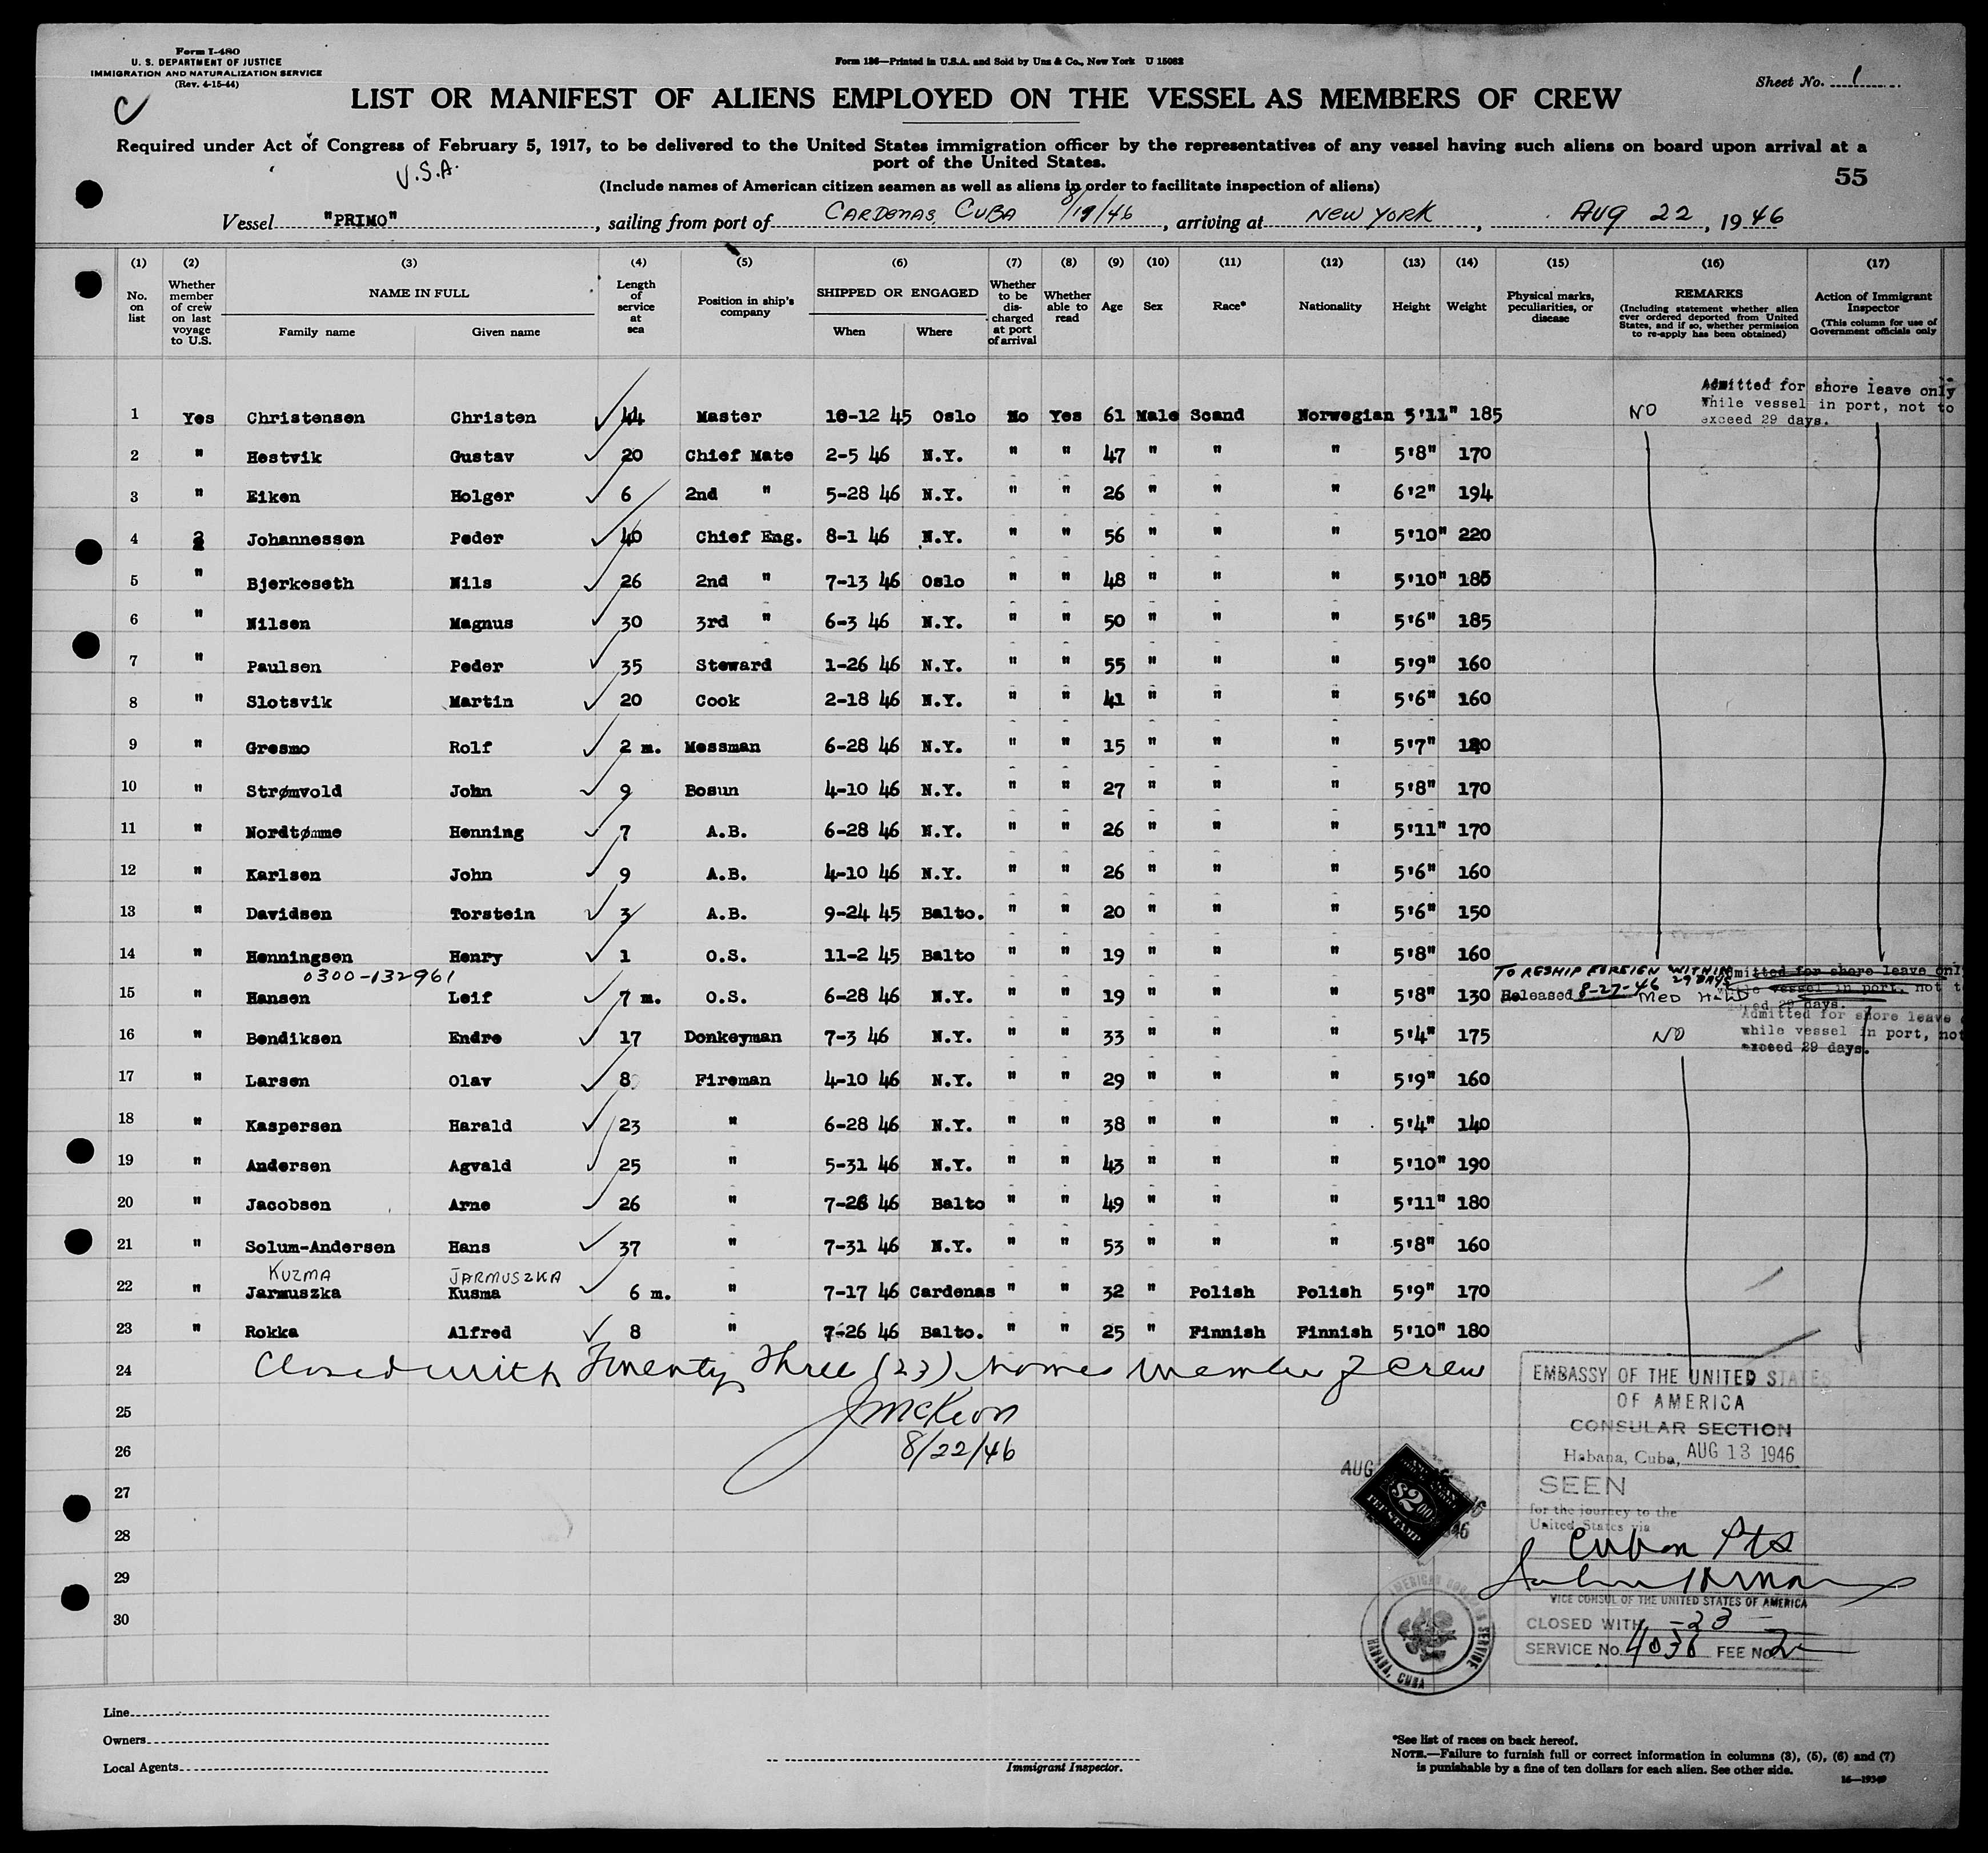 Form I-480
U. S. DEPARTMENT OF JUSTICE
IMMIGRATION AND NATURALIZATION SERVICE
(Rev. 4-15-44)
Form 136—Printed in U.S.A. and Sold by Unz & Co., New York U 15082
Sheet No. 1
LIST OR MANIFEST OF ALIENS EMPLOYED ON THE VESSEL AS MEMBERS OF CREW
Required under Act of Congress of February 5, 1917, to be delivered to the United States immigration officer by the representatives of any vessel having such aliens on board upon arrival at a
port of the United States.
U.S.A.
(Include names of American citizen seamen as well as aliens in order to facilitate inspection of aliens)
55
Vessel "PRIMO", sailing from port of CARDENAS, CUBA 8/19/46, arriving at NEW YORK, AUG 22, 1946
(1) (2) (3) (4) (5) (6) (7) (8) (9) (10) (11) (12) (13) (14) (15) (16) (17)
No. on list
Whether member of crew on last voyage to U.S.
NAME IN FULL
Family name Given name
Length of service at sea
Position in ship's company
SHIPPED OR ENGAGED
When Where
Whether to be discharged at port of arrival
Whether able to read
Age Sex Race* Nationality Height Weight
Physical marks, peculiarities, or disease
REMARKS
(Including statement whether alien ever ordered deported from United States, and if so, whether permission to re-apply has been obtained)
Action of Immigrant Inspector
(This column for use of Government officials only)
Admitted for shore leave only
While vessel in port, not to
exceed 29 days.
1 Yes Christensen Christen 44 Master 10-12 45 Oslo No Yes 61 Male Scand Norwegian 5'11" 185 NO
2 " Hestvik Gustav 20 Chief Mate 2-5 46 N.Y. " " 47 " " " 5'8" 170
3 " Eiken Holger 6 2nd " 5-28 46 N.Y. " " 26 " " " 6'2" 194
4 Johannessen Peder 40 Chief Eng. 8-1 46 N.Y. " " 56 " " " 5'10" 220
5 " Bjerkeseth Nils 26 2nd " 7-13 46 Oslo " " 48 " " " 5'10" 185
6 " Nilsen Magnus 30 3rd " 6-3 46 N.Y. " " 50 " " " 5'6" 185
7 " Paulsen Peder 35 Steward 1-26 46 N.Y. " " 55 " " " 5'9" 160
8 " Slotsvik Martin 20 Cook 2-18 46 N.Y. " " 41 " " " 5'6" 160
9 " Gresmo Rolf 2 m. Messman 6-28 46 N.Y. " " 15 " " " 5'7" 120
10 " Strømvold John 9 Bosun 4-10 46 N.Y. " " 27 " " " 5'8" 170
11 " Nordtømme Henning 7 A.B. 6-28 46 N.Y. " " 26 " " " 5'11" 170
12 " Karlsen John 9 A.B. 4-10 46 N.Y. " " 26 " " " 5'6" 160
13 " Davidsen Torstein 3 A.B. 9-24 45 Balto. " " 20 " " " 5'6" 150
14 " Henningsen Henry 1 O.S. 11-2 45 Balto " " 19 " " " 5'8" 160
0300-132961
TO RESHIP FOREIGN WITHIN 29 DAYS
Admitted for shore leave only
while vessel in port, not to
exceed 29 days.
15 " Hansen Leif 7 m. O.S. 6-28 46 N.Y. " " 19 " " " 5'8" 130 Released 8-27-46 MED HELD
Admitted for shore leave
while vessel in port, not
exceed 29 days.
16 " Bendiksen Endre 17 Donkeyman 7-3 46 N.Y. " " 33 " " " 5'4" 175 NO
17 " Larsen Olav 8 Fireman 4-10 46 N.Y. " " 29 " " " 5'9" 160
18 " Kaspersen Harald 23 " 6-28 46 N.Y. " " 38 " " " 5'4" 140
19 " Andersen Agvald 25 " 5-31 46 N.Y. " " 43 " " " 5'10" 190
20 " Jacobsen Arne 26 " 7-26 46 Balto " " 49 " " " 5'11" 180
21 " Solum-Andersen Hans 37 " 7-31 46 N.Y. " " 53 " " " 5'8" 160
KUZMA JARMUSZKA
22 " Jarmuszka Kusma 6 m. " 7-17 46 Cardenas " " 32 " Polish Polish 5'9" 170
23 " Rokka Alfred 8 " 7-26 46 Balto. " " 25 " Finnish Finnish 5'10" 180
24 Closed with Twenty Three (23) names member of crew
25 J McKeon
26 8/22/46
27
28
29
30
EMBASSY OF THE UNITED STATES
OF AMERICA
CONSULAR SECTION
Habana, Cuba, AUG 13 1946
SEEN
for the journey to the
United States via
Cuban Pts
VICE CONSUL OF THE UNITED STATES OF AMERICA
CLOSED WITH -23-
SERVICE No. 4036 FEE No 2
AUG
$2.00
FEE STAMP
46
AMERICAN FOREIGN SERVICE
HABANA, CUBA
Line
Owners
Local Agents
Immigrant Inspector.
*See list of races on back hereof.
NOTE.—Failure to furnish full or correct information in columns (3), (5), (6) and (7)
is punishable by a fine of ten dollars for each alien. See other side.
16—19349